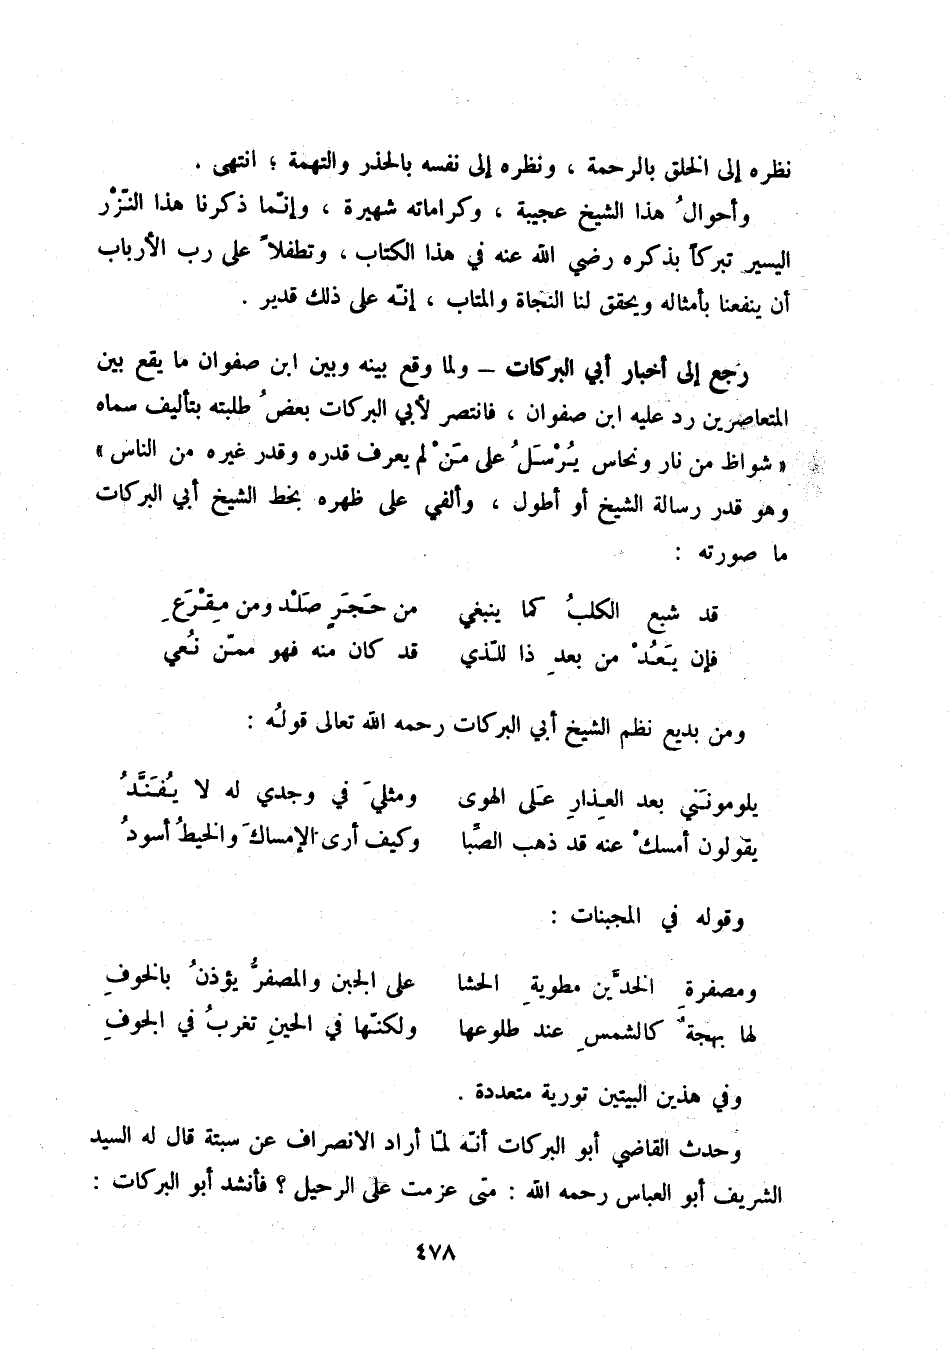 نظره إلى الخلق بالرحمة ، ونظره إلى نفسه بالحذر والتهمة ؛ انتهى .
وأحوالُ هذا الشيخ عجيبة ، وكراماته شهيرة ، وإنّما ذكرنا هذا النّزْر
اليسير تبركاً بذكره رضي الله عنه في هذا الكتاب ، وتطفلاً على رب الأرباب
أن ينفعنا بأمثاله ويحقق لنا النجاة والمتاب ، إنّه على ذلك قدير .
رجع إلى أخبار أبي البركات – ولما وقع بينه وبين ابن صفوان ما يقع بين
المتعاصرين رد عليه ابن صفوان ، فانتصر لأبي البركات بعضُ طلبته بتأليف سماه
« شواظ من نار ونحاس يُرْسَلُ على مَنْ لم يعرف قدره وقدر غيره من الناس »
وهو قدر رسالة الشيخ أو أطول ، وألفي على ظهره بخط الشيخ أبي البركات
ما صورته :
قد شبع الكلبُ كما ينبغي من حَجَرٍ صَلْد ومن مِقْرَعِ
فإن يَعُدْ من بعدِ ذا للّذي قد كان منه فهو ممّن نُعي
ومن بديع نظم الشيخ أبي البركات رحمه الله تعالى قولُه :
يلومونَني بعد العِذارِ عَلى الهوى ومثليَ في وجدي له لا يُفَنَّدُ
يقولون أمسكْ عنه قد ذهب الصِّبا وكيف أرى الإمساكَ والخيطُ أسودُ
وقوله في المجبنات :
ومصفرةِ الخدَّين مطويةِ الحشا على الجبن والمصفرُّ يؤذنُ بالخوفِ
لها بهجةٌ كالشمسِ عند طلوعها ولكنّها في الحينِ تغربُ في الجوفِ
وفي هذين البيتين تورية متعددة .
وحدث القاضي أبو البركات أنّه لمّا أراد الانصراف عن سبتة قال له السيد
الشريف أبو العباس رحمه الله : متى عزمت على الرحيل ؟ فأنشد أبو البركات :
٤٧٨